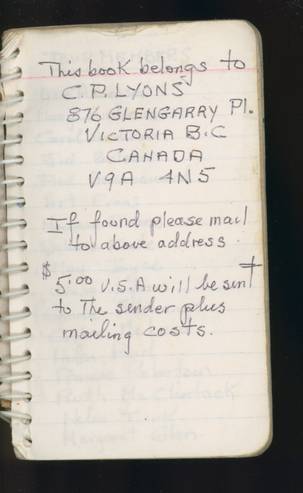 This book belongs to
C.P. LYONS
876 GLENGARRY Pl.
VICTORIA B.C
CANADA
V9A 4N5
If found please mail
to above address
$5.00 U.S.A will be sent
to The sender plus
mailing costs.